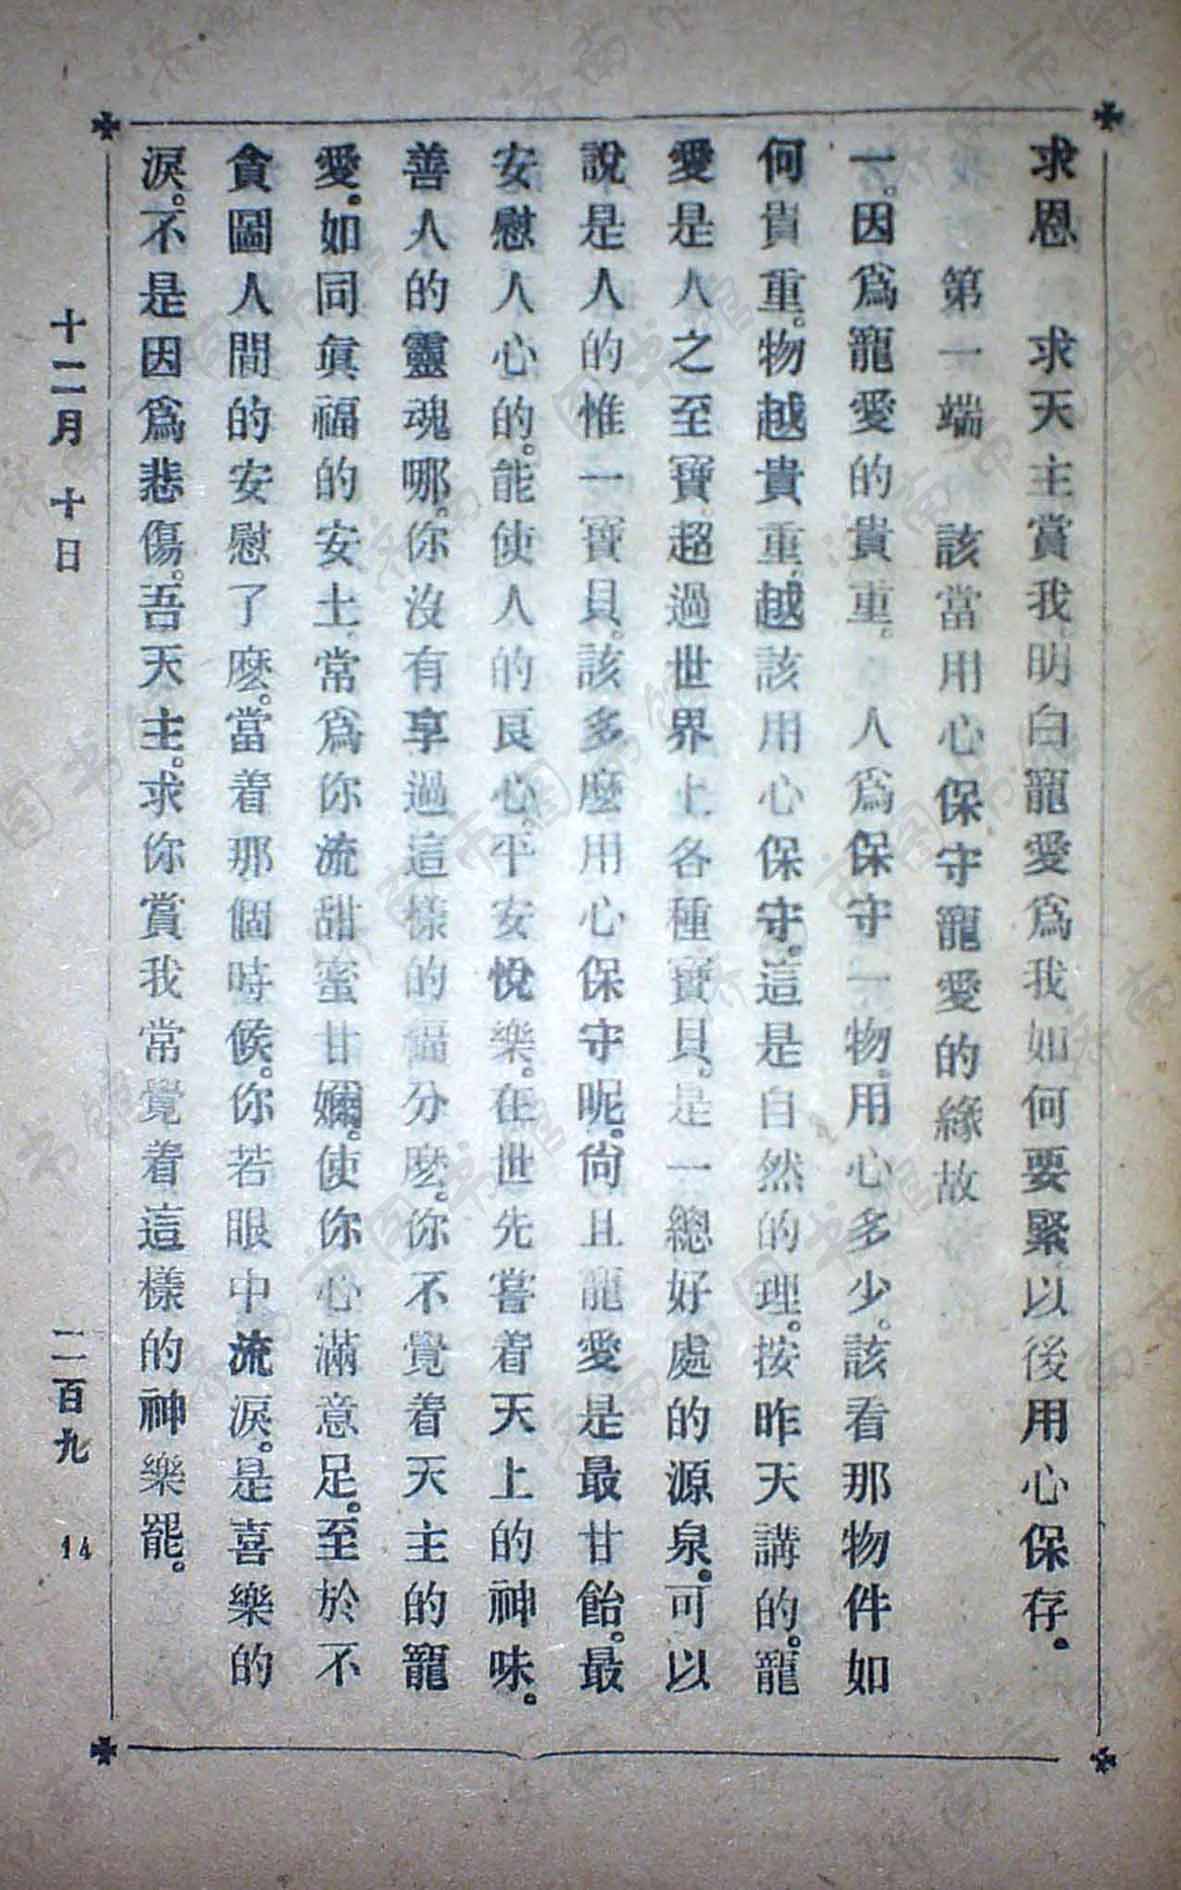 求恩　求天主賞我明白寵愛爲我如何要緊以後用心保存。
第一端　該當用心保守寵愛的緣故
一。因爲寵愛的貴重。人爲保守一物。用心多少。該看那物件如
何貴重。物越貴重。越該用心保守。這是自然的理。按昨天講的。寵
愛是人之至寶。超過世界上各種寶貝。是一總好處的源泉。可以
說是人的惟一寶貝。該多麼用心保守呢。尙且寵愛是最甘飴。最
安慰人心的。能使人的良心。平安悅樂。在世先嘗着天上的神味。
善人的靈魂。哪。你沒有享過這樣的福分麽。你不覺着天主的寵
愛。如同眞福的安土。常爲你流甜蜜甘嬭。使你心滿意足。至於不
貪圖人間的安慰了麽。當着那個時候。你若眼中流淚。是喜樂的
淚。不是因爲悲傷。吾天主。求你賞我常覺着這樣的神樂罷。
十二月十日　二百九　14
济南市图书馆